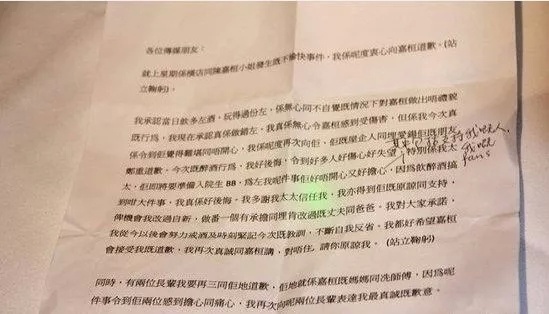 各位傳媒朋友：
就上星期係橫店同陳嘉桓小姐發生既不愉快事件，我係呢度衷心向嘉桓道歉。(站
立鞠躬)。
我承認當日飲多左酒，玩得過份左，係無心同不自覺既情況下對嘉桓做出唔禮貌
既行為，我現在承認真係做錯左，我真係無心令嘉桓感到受傷害，但係我今次真
係令到佢覺得難堪同唔開心，我係呢度再次向佢，佢既屋企人同埋愛錫佢既朋友
鄭重道歉，今次既醉酒行為，我好後悔，令到好多人好傷心好失望，特別係我太
其中包括支持我既人，
我既
fans
太，佢即將要準備入院生 BB，為左我呢件事佢好唔開心又好擔心，因為飲醉酒搞
到咁大件事，我真係好後悔。我多謝我太太信任我，我亦得到佢既原諒同支持，
俾機會我改過自新，做番一個有承擔同埋肯改過既丈夫同爸爸。我對大家承諾，
我從今以後會努力戒酒及時刻緊記今次既教訓，不斷自我反省。我都好希望嘉桓
會接受我既道歉，我再次真誠同嘉桓講，對唔住，請你原諒我。(站立鞠躬)
同時，有兩位長輩我要再三同佢地道歉，佢地就係嘉桓既媽媽同冼師傅，因為呢
件事令到佢兩位感到擔心同痛心，我再次向呢兩位長輩表達我最真誠既歉意。